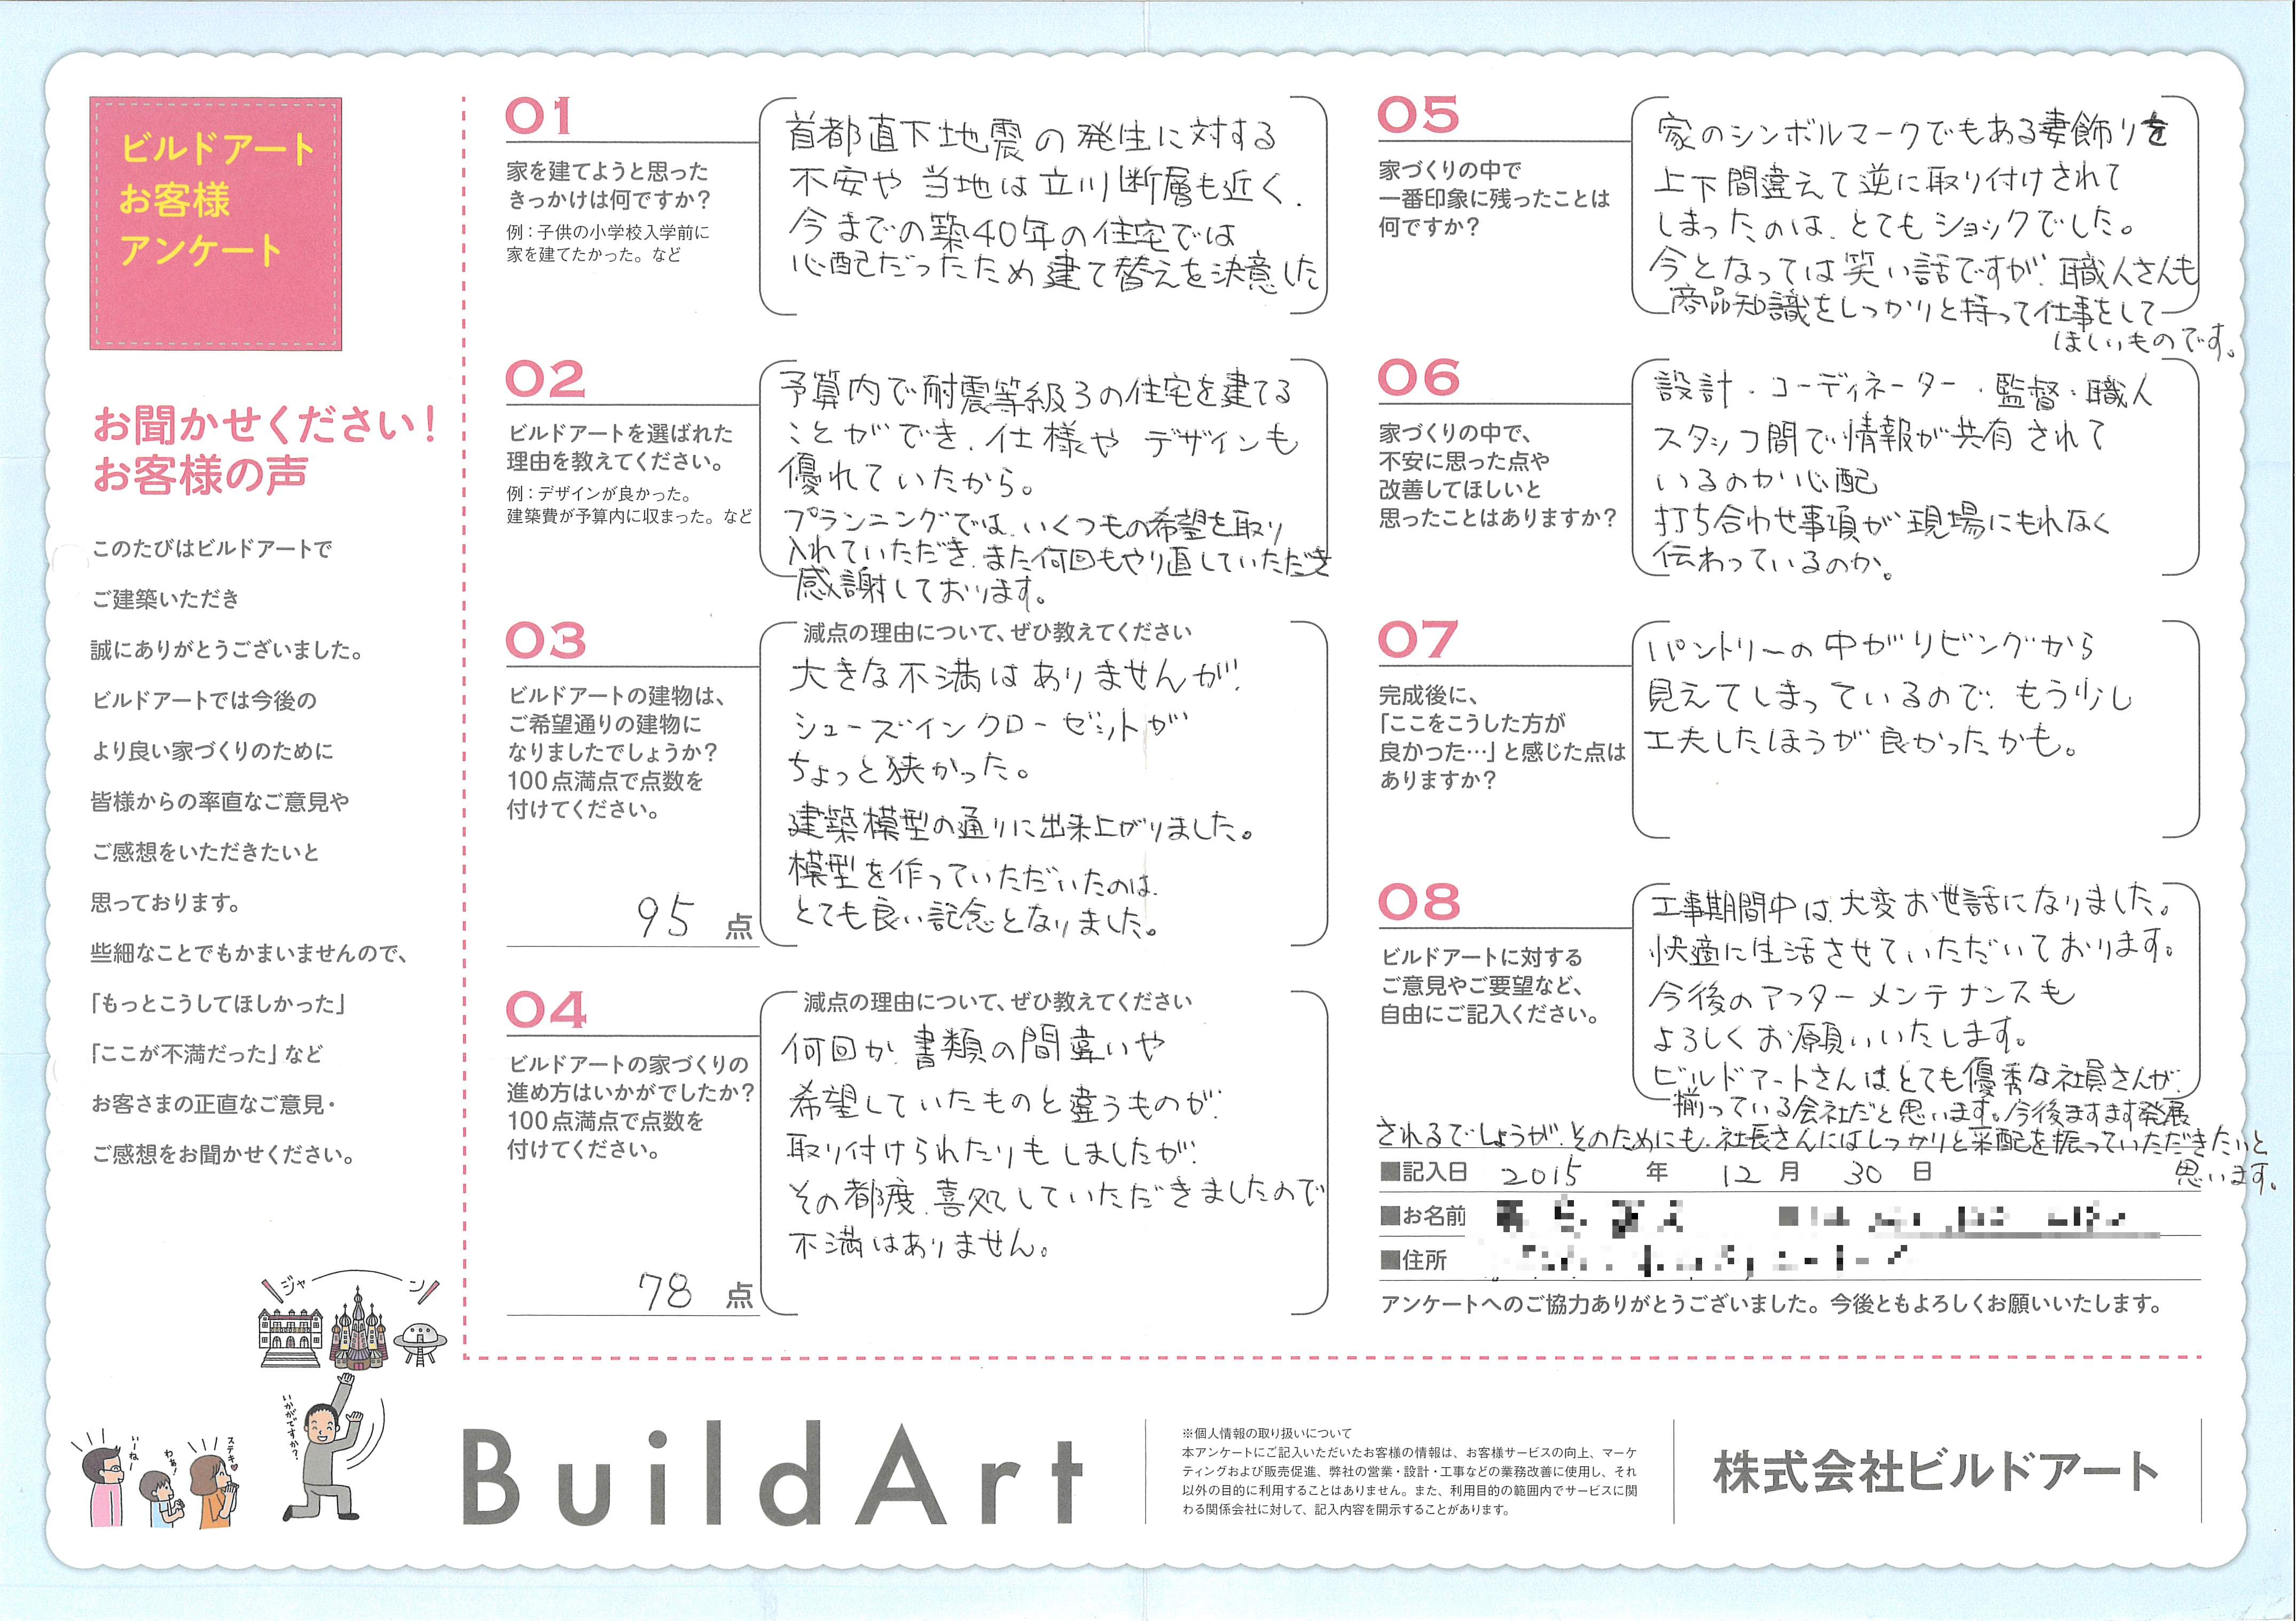 ビルドアート
お客様
アンケート
お聞かせください！
お客様の声
このたびはビルドアートで
ご建築いただき
誠にありがとうございました。
ビルドアートでは今後の
より良い家づくりのために
皆様からの率直なご意見や
ご感想をいただきたいと
思っております。
些細なことでもかまいませんので、
「もっとこうしてほしかった」
「ここが不満だった」など
お客さまの正直なご意見・
ご感想をお聞かせください。
ジャ ン
いかがですか？
いーねー
わぁ！
ステキ♥
01
家を建てようと思った
きっかけは何ですか？
例：子供の小学校入学前に
家を建てたかった。など
首都直下地震の発生に対する
不安や 当地は立川断層も近く、
今までの築40年の住宅では
心配だったため建て替えを決意した
02
ビルドアートを選ばれた
理由を教えてください。
例：デザインが良かった。
建築費が予算内に収まった。など
予算内で耐震等級3の住宅を建てる
ことができ、仕様や デザインも
優れていたから。
プランニングでは、いくつもの希望を取り
入れていただき、また何回もやり直していただき
感謝しております。
03
ビルドアートの建物は、
ご希望通りの建物に
なりましたでしょうか？
100点満点で点数を
付けてください。
95 点
減点の理由について、ぜひ教えてください
大きな不満はありませんが、
シューズインクローゼットが
ちょっと狭かった。
建築模型の通りに出来上がりました。
模型を作っていただいたのは、
とても良い記念となりました。
04
ビルドアートの家づくりの
進め方はいかがでしたか？
100点満点で点数を
付けてください。
78 点
減点の理由について、ぜひ教えてください
何回か、書類の間違いや
希望していたものと違うものが、
取り付けられたりもしましたが、
その都度、善処していただきましたので
不満はありません。
05
家づくりの中で
一番印象に残ったことは
何ですか？
家のシンボルマークでもある妻飾りを
上下間違えて逆に取り付けされて
しまったのは、とてもショックでした。
今となっては笑い話ですが、職人さんも
商品知識をしっかりと持って仕事をして
ほしいものです。
06
家づくりの中で、
不安に思った点や
改善してほしいと
思ったことはありますか？
設計・コーディネーター・監督・職人
スタッフ間で情報が共有されて
いるのか心配
打ち合わせ事項が現場にもれなく
伝わっているのか。
07
完成後に、
「ここをこうした方が
良かった…」と感じた点は
ありますか？
パントリーの中がリビングから
見えてしまっているので、もう少し
工夫したほうが良かったかも。
08
ビルドアートに対する
ご意見やご要望など、
自由にご記入ください。
工事期間中は、大変お世話になりました。
快適に生活させていただいております。
今後のアフターメンテナンスも
よろしくお願いいたします。
ビルドアートさんはとても優秀な社員さんが、
揃っている会社だと思います。今後ますます発展
されるでしょうが、そのためにも、社長さんにはしっかりと采配を振っていただきたいと
思います。
■記入日 2015 年 12 月 30 日
■お名前
■住所
アンケートへのご協力ありがとうございました。今後ともよろしくお願いいたします。
BuildArt
※個人情報の取り扱いについて
本アンケートにご記入いただいたお客様の情報は、お客様サービスの向上、マーケ
ティングおよび販売促進、弊社の営業・設計・工事などの業務改善に使用し、それ
以外の目的に利用することはありません。また、利用目的の範囲内でサービスに関
わる関係会社に対して、記入内容を開示することがあります。
株式会社ビルドアート